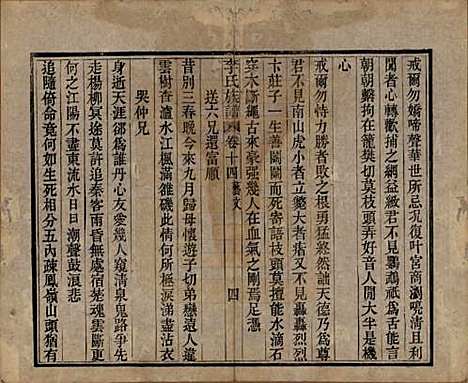 戒爾勿嬌啼聲華世所忌況復叶宮商瀏喨清且利
聞者心轉歡捕之網益緻君不見鸚鵡祇爲舌能言
朝朝繫拘在籠樊切莫枝頭弄好音人閒大半是機
心
戒爾勿恃力勝者有敗理勇猛安足恃天德乃爲尊
君不見南山虎小者立斃大者痞又不見轟轟烈烈
卞莊子一生善鬭鬭而死寄語枝頭莫擅能水滴石
穿木斷繩古來豪强幾人在血氣之剛焉足憑
李氏族譜 卷十四藝文 四
送六兄還富順
昔別三春晚今來九月歸母懷遊子切弟戀還人違
雲樹杳瀘水江楓滿雒磯此情何所極淚涕盡沾衣
哭仲兄
身逝天涯卻爲誰丹心友愛幾人窺清泉鬼路爭先
走楊柳冥途莫許追秦客南音無處宿楚魂雲斷有
何之江陽不盡東流水日日潮聲鼓浪悲
追隨倚命竟何如生死相分五內疎鳳嶺山頭猶有